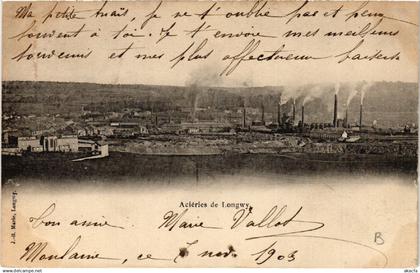 Ma petite Anaïs, je ne t'oublie pas et pense
souvent à toi. Je t'envoie mes meilleurs
souvenirs et mes plus affectueux baisers
Aciéries de Longwy
J.-B. Marie, Longwy.
Ton amie Marie Vallot
Mondame, ce 7 nov. 1903
B